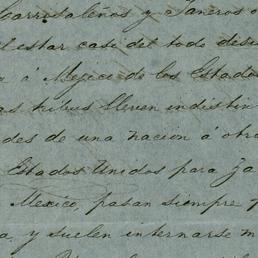 Carrizaleños y Janeros
el estar casi del todo
a á Mejico de los Estados
as tribus lleven indistin
des de una nacion á otra
Estados Unidos para
Mexico, pasan siempre
a, y suelen internarse m